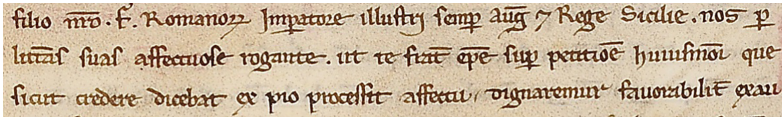 filio nr̄o . F̄. Romanoꝝ Imꝑatore illustri semꝑ Auḡ ⁊ Rege Sicilie . nos ꝑ
litt̄as suas affectuose rogante . ut te frat̄ ep̄e suꝑ petitiōe huiusmōi que
sicut credere dicebat ex pio processit affectu dignaremur favorabilit̄ exau